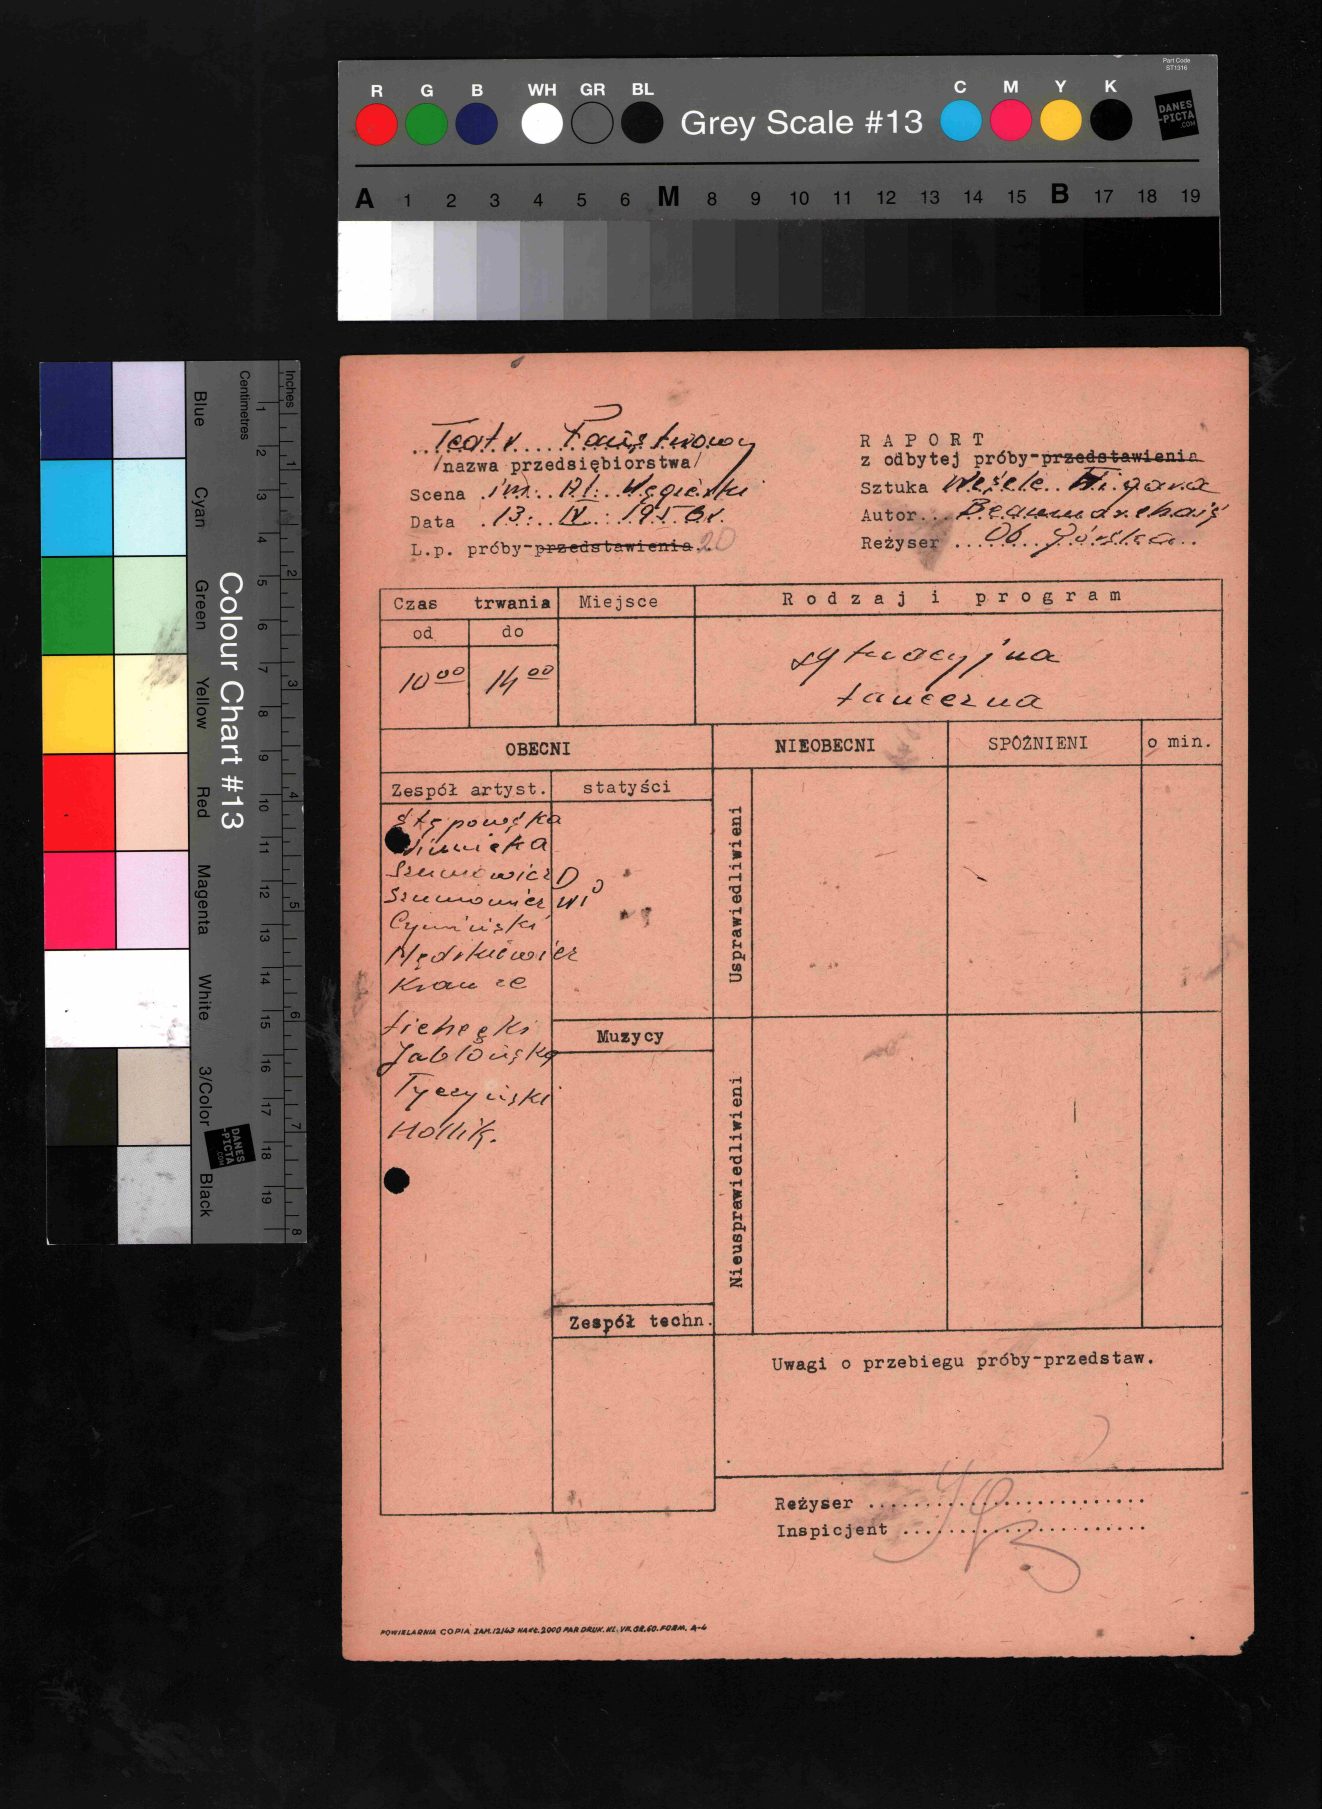 Part Code
ST1316
R G B WH GR BL Grey Scale #13 C M Y K
DANES
-PICTA
.COM
A 1 2 3 4 5 6 M 8 9 10 11 12 13 14 15 B 17 18 19
Colour Chart #13
Blue Cyan Green Yellow Red Magenta White 3/Color Black
Centimetres
1 2 3 4 5 6 7 8 9 10 11 12 13 14 15 16 17 18 19
Inches
1 2 3 4 5 6 7 8
DANES
-PICTA
.COM
Teatr Państwowy
/nazwa przedsiębiorstwa/
Scena im. Al. Węgierki
Data 13. IV. 1956r.
L.p. próby-przedstawienia 20
RAPORT
z odbytej próby-przedstawienia
Sztuka Wesele Figara
Autor Beaumarchais
Reżyser Ob Górska
Czas trwania Miejsce Rodzaj i program
od do
10 00 14 00
sytuacyjna
taneczna
OBECNI NIEOBECNI SPÓŹNIENI o min.
Zespół artyst. statyści
Stępowska
Szumowicz D
Szumowicz Wł
Cymiński
Mędrkiewicz
Krauze
Lichecki
Jabłońska
Tyczyński
Hollik.
Usprawiedliwieni
Muzycy
Nieusprawiedliwieni
Zespół techn.
Uwagi o przebiegu próby-przedstaw.
Reżyser
Inspicjent
POWIELARNIA COPIA ZAM.12143 NAKŁ.2000 PAP.DRUK.KL.VII.GR.60.FORM. A-4